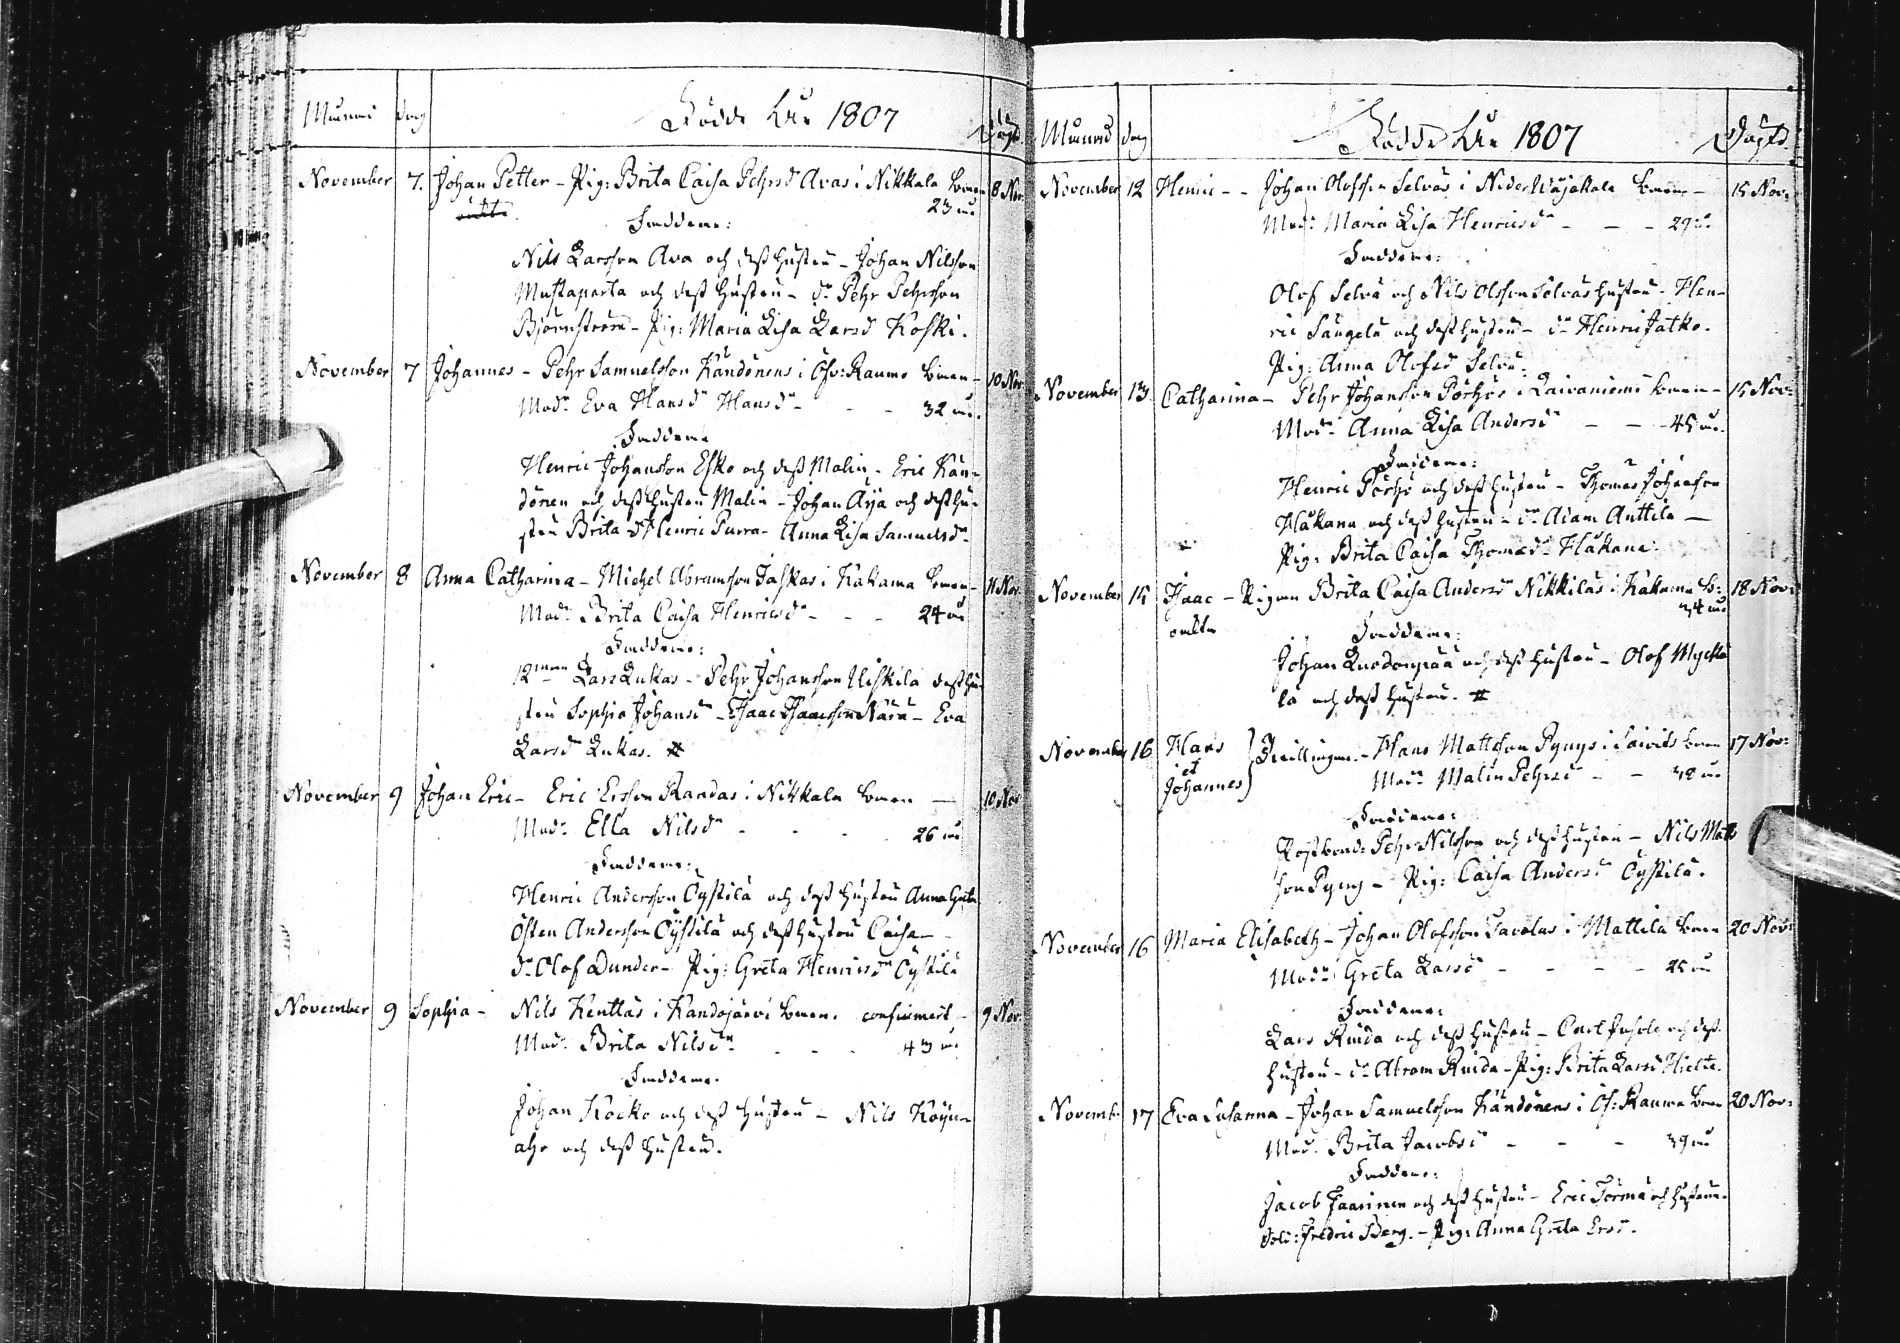 Månad dag Födde År 1807 Döpt
November 7. Johan Petter - Pig: Brita Caisa Pehrsdr Avas i Nikkala byman 8 Nov:
oächta 23 år
Faddrar:
Nils Larsson Ava och dess hustru - Johan Nilsson
Mustaparta och dess hustru - dr: Pehr Pehrsson
Björnström - Pig: Maria Lisa Larsdr Koski.
November 7 Johannes - Pehr Samuelsson Kändönens i Öfv: Raumo byman - 10 Nov:
Modr: Eva Hansdr Hansdr - - - 32 år.
Faddrar
Henric Johansson Esko och dess Malin - Eric Kän-
dönen och dess hustru Malin - Johan Äijä och dess hu-
stru Brita dr Henric Purra - Anna Lisa Samuelsdr
November 8 Anna Catharina - Michel Abramsson Taskas i Kakama byman - 11 Nov:
Modr: Brita Caisa Henricsdr - - - 24 år
Faddrar:
12man Lars Lukas - Pehr Johansson Niskila dess hu-
stru Sophia Johansdr - Isaac Isaacsson Närä - Eva
Larsdr Lukas. #
November 9 Johan Eric - Eric Ersson Raadas i Nikkala byman — 10 Nov
Modr: Ella Nilsdr - - - 26 år
Faddrar:
Henric Andersson Öystilä och dess hustru Anna Greta
Östen Andersson Öystilä och dess hustru Caisa -
dr: Olof Dunder - Pig: Greta Henricsdr Öystilä
November 9 Sophia - Nils Kenttäs i Kandojärvi byman. confirmert - 9 Nov:
Modr: Brita Nilsdr - - - 43 år
Faddrar.
Johan Kocko och dess hustru - Nils
och dess hustru.
Månad dag Födde År 1807 Döpte
November 12 Henric - - Johan Olofsson Selväs i Neder Wojakala byman - 15 Nov:
Modr: Maria Lisa Henricsdr - - - 29 år
Faddrar:
Olof Selvä och Nils Olsson Selväs hustru - Hen-
ric Sangelä och dess hustru - dr Henric Jatko.
Pig: Anna Olofsdr Selvä.
November 13 Catharina - Pehr Johansson Pörhös i Laivaniemi byman - 15 Nov:
Modr: Anna Lisa Andersdr - - - 45 år.
Faddrar:
Henric Pörhö och dess hustru - Thomas Johansson
Hakana och dess hustru - dr Adam Anttila —
Pig: Brita Caisa Thomasdr Hakana.
November 15 Isaac - Pigan Brita Caisa Andersdr Nikkiläs i Kakama b: 18 Nov:
oächta 24 år
Faddrar:
Johan Luodonpää och dess hustru - Olof Myckä-
lä och dess hustru. #
November 16 Hans et Johannes } Tvillingar. - Hans Mattsson Pynys i Saivits byman 17 Nov:
Modr: Malin Pehrsdr - - 38 år
Faddrar:
Pehr Nilsson och dess hustru - Nils Matts
son Pyny - Pig: Caisa Andersdr Öystilä.
November 16 Maria Elisabeth - Johan Olofsson Tavolas i Mattila byman 20 Nov:
Modr: Greta Larsdr - - - - 25 år
Faddrar:
Lars Ruida och dess hustru - Carl och dess
hustru - dr Abram Ruida - Pig: Brita Larsdr Hietä.
November 17 Eva Susanna - Johan Samuelsson Kändönens i Öf: Raumo byman 20 Nov:
Modr: Brita Jacobsdr - - - 39 år
Faddrar:
Jacob Jaarinen och dess hustru - Eric Törmä och hustrun.
Sold: Fredric Berg. - Pig: Anna Greta Ersdr.